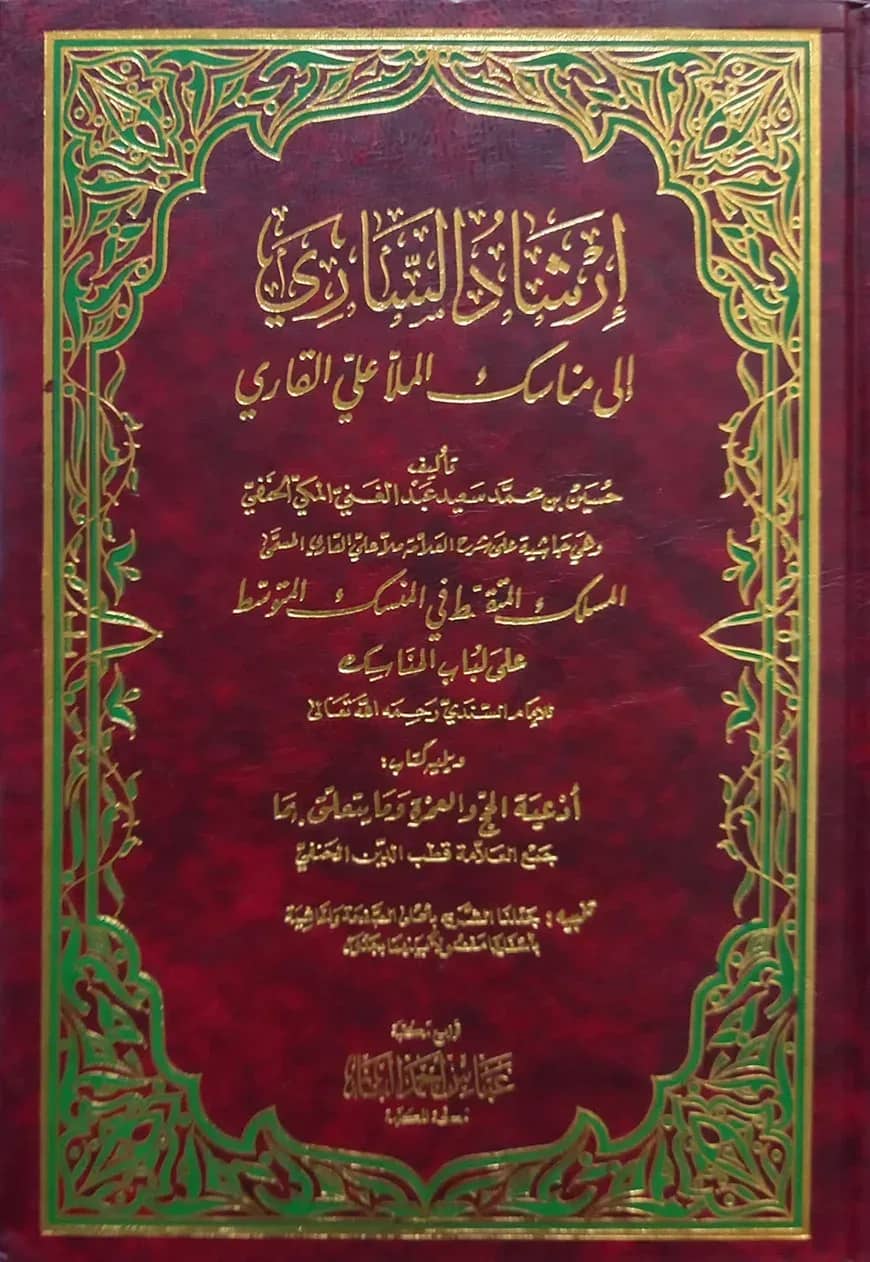 إِرْشَادُ السَّارِي
إلى مناسك الملّا علي القاري
تأليف
حُسَيْن بن محمَّد سَعيد عَبْد الغَنيّ المكيّ الحَنَفيّ
وهي حَاشية عَلى شرح العَلّامة ملّا عليّ القاري المسمّى
المسلك المتقسّط في المنسك المتوسّط
عَلى لبَاب المنَاسِك
للإمام السّنديّ رَحِمه الله تعَالى
ويليه كتاب:
أدْعيَة الحجّ والعمرة وَمَا يتعلّق بهَا
جَمع العَلّامة قطب الدّين الحنفيّ
تنبيه: جَعَلنَا الشّرح بأعلى الصّفحة والحَاشيَة
بأسفلها مفصُولًا بينهما بجدول
عَبّاس أحمد البَاز
مكة المكرّمة